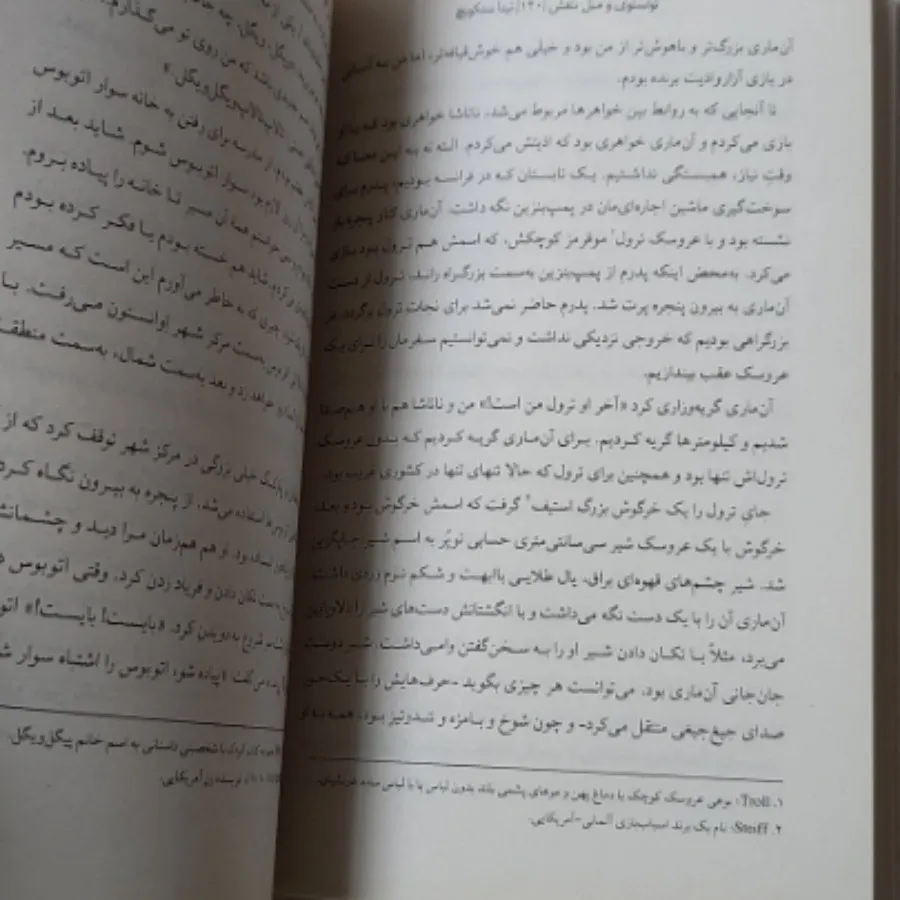 تولستوی و مبل بنفش [۱۴۰] نینا سنکویچ
آن‌ماری بزرگ‌تر و باهوش‌تر از من بود و خیلی هم خوش‌قیافه‌تر، اما من به آسانی
در بازی آزار و اذیت برنده بودم.
تا آنجایی که به روابط بین خواهرها مربوط می‌شد، ناتاشا خواهری بود که با او
بازی می‌کردم و آن‌ماری خواهری بود که اذیتش می‌کردم. البته نه به این معنا که
وقتِ نیاز، همبستگی نداشتیم. یک تابستان که در فرانسه بودیم، پدرم برای
سوخت‌گیری ماشین اجاره‌ای‌مان در پمپ‌بنزین نگه داشت. آن‌ماری کنار پنجره باز
نشسته بود و با عروسک ترول۱ موقرمز کوچکش، که اسمش هم ترول بود بازی
می‌کرد. به‌محض اینکه پدرم از پمپ‌بنزین به‌سمت بزرگراه راند، ترول از دست
آن‌ماری به بیرون پنجره پرت شد. پدرم حاضر نمی‌شد برای نجات ترول برگردد. در
بزرگراهی بودیم که خروجی نزدیکی نداشت و نمی‌توانستیم سفرمان را برای یک
عروسک عقب بیندازیم.
آن‌ماری گریه‌وزاری کرد «آخر او ترول من است!» من و ناتاشا هم با او هم‌صدا
شدیم و کیلومترها گریه کردیم. برای آن‌ماری گریه کردیم که بدون عروسک
ترول‌اش تنها بود و همچنین برای ترول که حالا تنهای تنها در کشوری غریب بود.
جای ترول را یک خرگوش بزرگ استیف۲ گرفت که اسمش خرگوش بود و بعد
خرگوش با یک عروسک شیر سی‌سانتی‌متری حسابی توپُر به اسم شیر جایگزین
شد. شیر چشم‌های قهوه‌ای براق، یال طلایی باابهت و شکم نرم زردی داشت.
آن‌ماری آن را با یک دست نگه می‌داشت و با انگشتانش دست‌های شیر را
می‌برد، مثلاً با تکان دادن شیر او را به سخن‌گفتن وامی‌داشت. شیر دوست
جان‌جانی آن‌ماری بود، می‌توانست هر چیزی بگوید -حرف‌هایش را با یک جور
صدای جیغ‌جیغی منتقل می‌کرد- و چون شوخ و بامزه و تندوتیز بود، همه به او
۱. Troll: نوعی عروسک کوچک با دماغ پهن و موهای پشمی بلند بدون لباس یا با لباس ساده
۲. Steiff: نام یک برند اسباب‌بازی آلمانی-آمریکایی.
باشد که من روی تو می‌گذارم.
از مدرسه برای رفتن به خانه سوار اتوبوس
سوار اتوبوس شوم. شاید بعد از
همهٔ آن مسیر تا خانه را پیاده بروم.
شاید هم خسته بودم یا فکر کرده بودم
که به خاطر می‌آورم این است که مسیر
به‌سمت مرکز شهر اوانستون می‌رفت. با
و بعد به‌سمت شمال، به‌سمت
خیلی بزرگی در مرکز شهر توقف کرد که از
استفاده می‌شد، از پنجره به بیرون نگاه
او هم هم‌زمان مرا دید و
تکان دادن و فریاد زدن کرد. وقتی اتوبوس
شروع به دویدن کرد. «بایست! بایست!»
می‌گفت: «پیاده شو، اتوبوس را اشتباه سوار
شخصیتی داستانی به اسم خانم پیگل‌ویگل.
نویسنده زن آمریکایی.